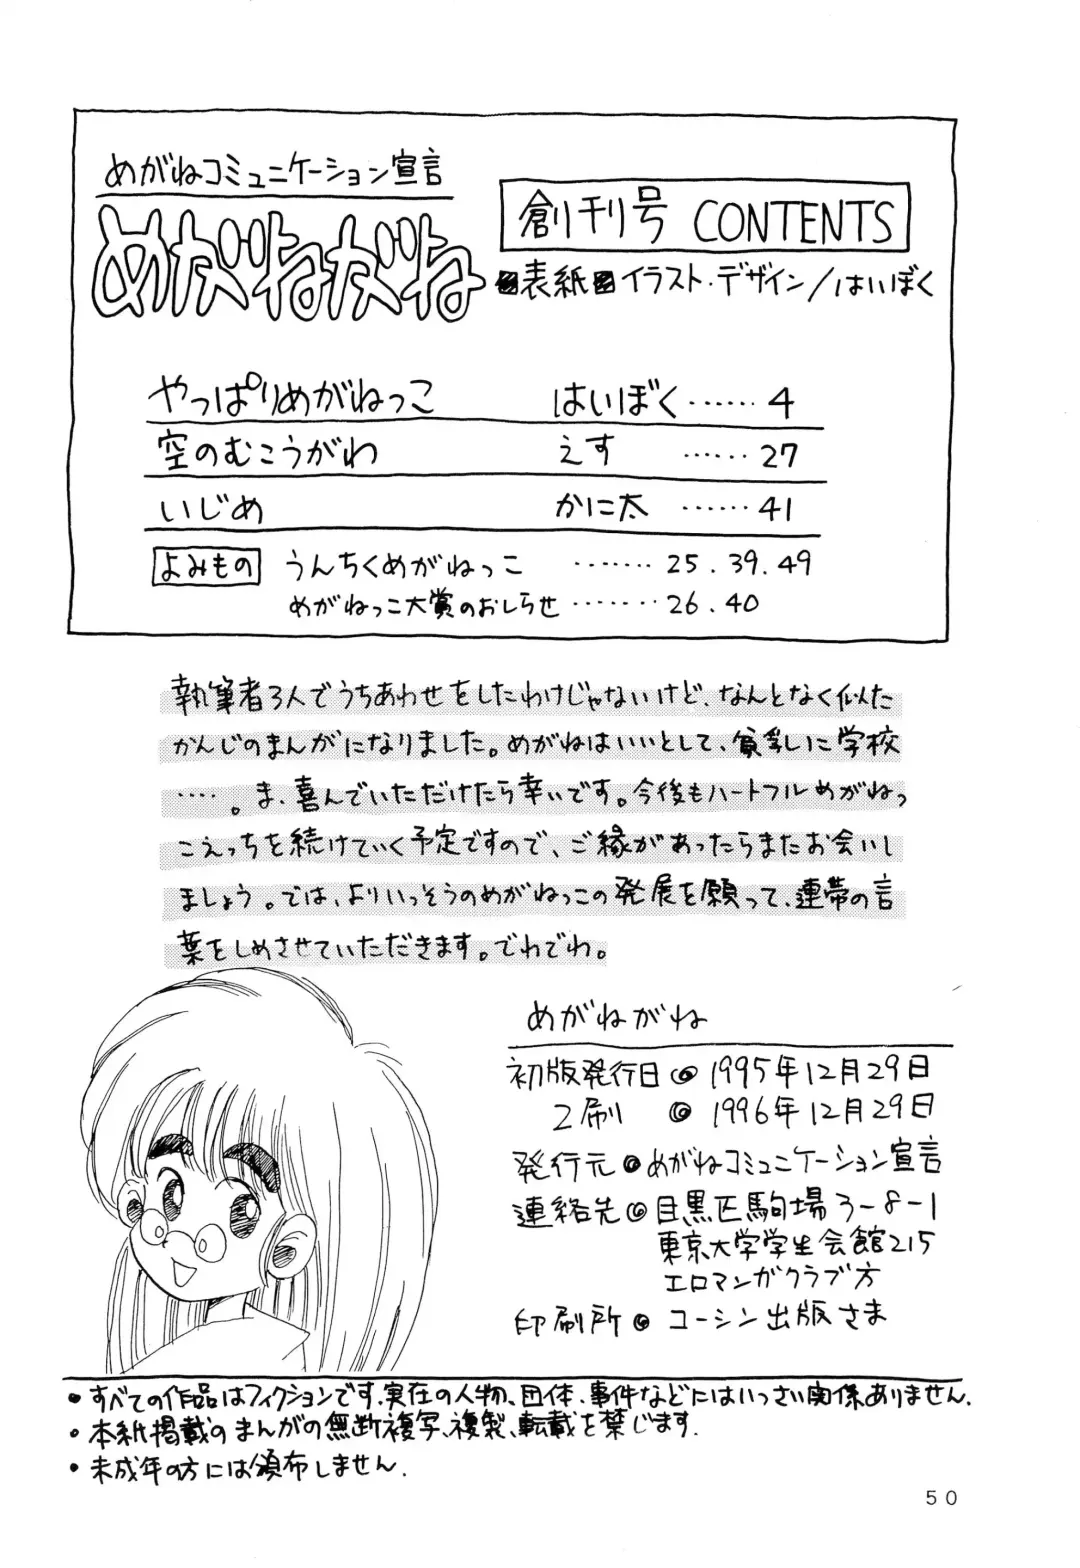 めがねコミュニケーション宣言
めがねがね
創刊号 CONTENTS
表紙 イラスト・デザイン/はいぼく
やっぱりめがねっこ はいぼく……4
空のむこうがわ えす ……27
いじめ かに太 ……41
よみもの うんちくめがねっこ ……25.39.49
めがねっこ大賞のおしらせ ……26.40
執筆者3人でうちあわせをしたわけじゃないけど、なんとなく似た
かんじのまんがになりました。めがねはいいとして、貧乳に学校
‥‥。ま、喜んでいただけたら幸いです。今後もハートフルめがねっ
こえっちを続けていく予定ですので、ご縁があったらまたお会いし
ましょう。では、よりいっそうのめがねっこの発展を願って、連帯の言
葉をしめさせていただきます。でわでわ。
めがねがね
初版発行日◎1995年12月29日
2刷 ◎1996年12月29日
発行元◎めがねコミュニケーション宣言
連絡先◎目黒区駒場3-8-1
東京大学学生会館215
エロマンガクラブ方
印刷所◎コーシン出版さま
・すべての作品はフィクションです。実在の人物、団体、事件などにはいっさい関係ありません。
・本紙掲載のまんがの無断複写、複製、転載を禁じます。
・未成年の方には頒布しません。
50